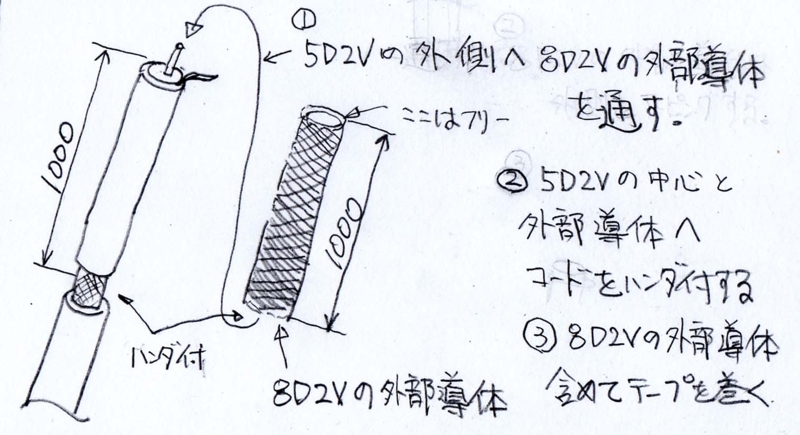 ①
5D2Vの外側へ8D2Vの外部導体
を通す。
ここはフリー
1000
1000
②5D2Vの中心と
外部導体へ
コードをハンダ付する
③8D2Vの外部導体
含めてテープを巻く
ハンダ付
8D2Vの外部導体